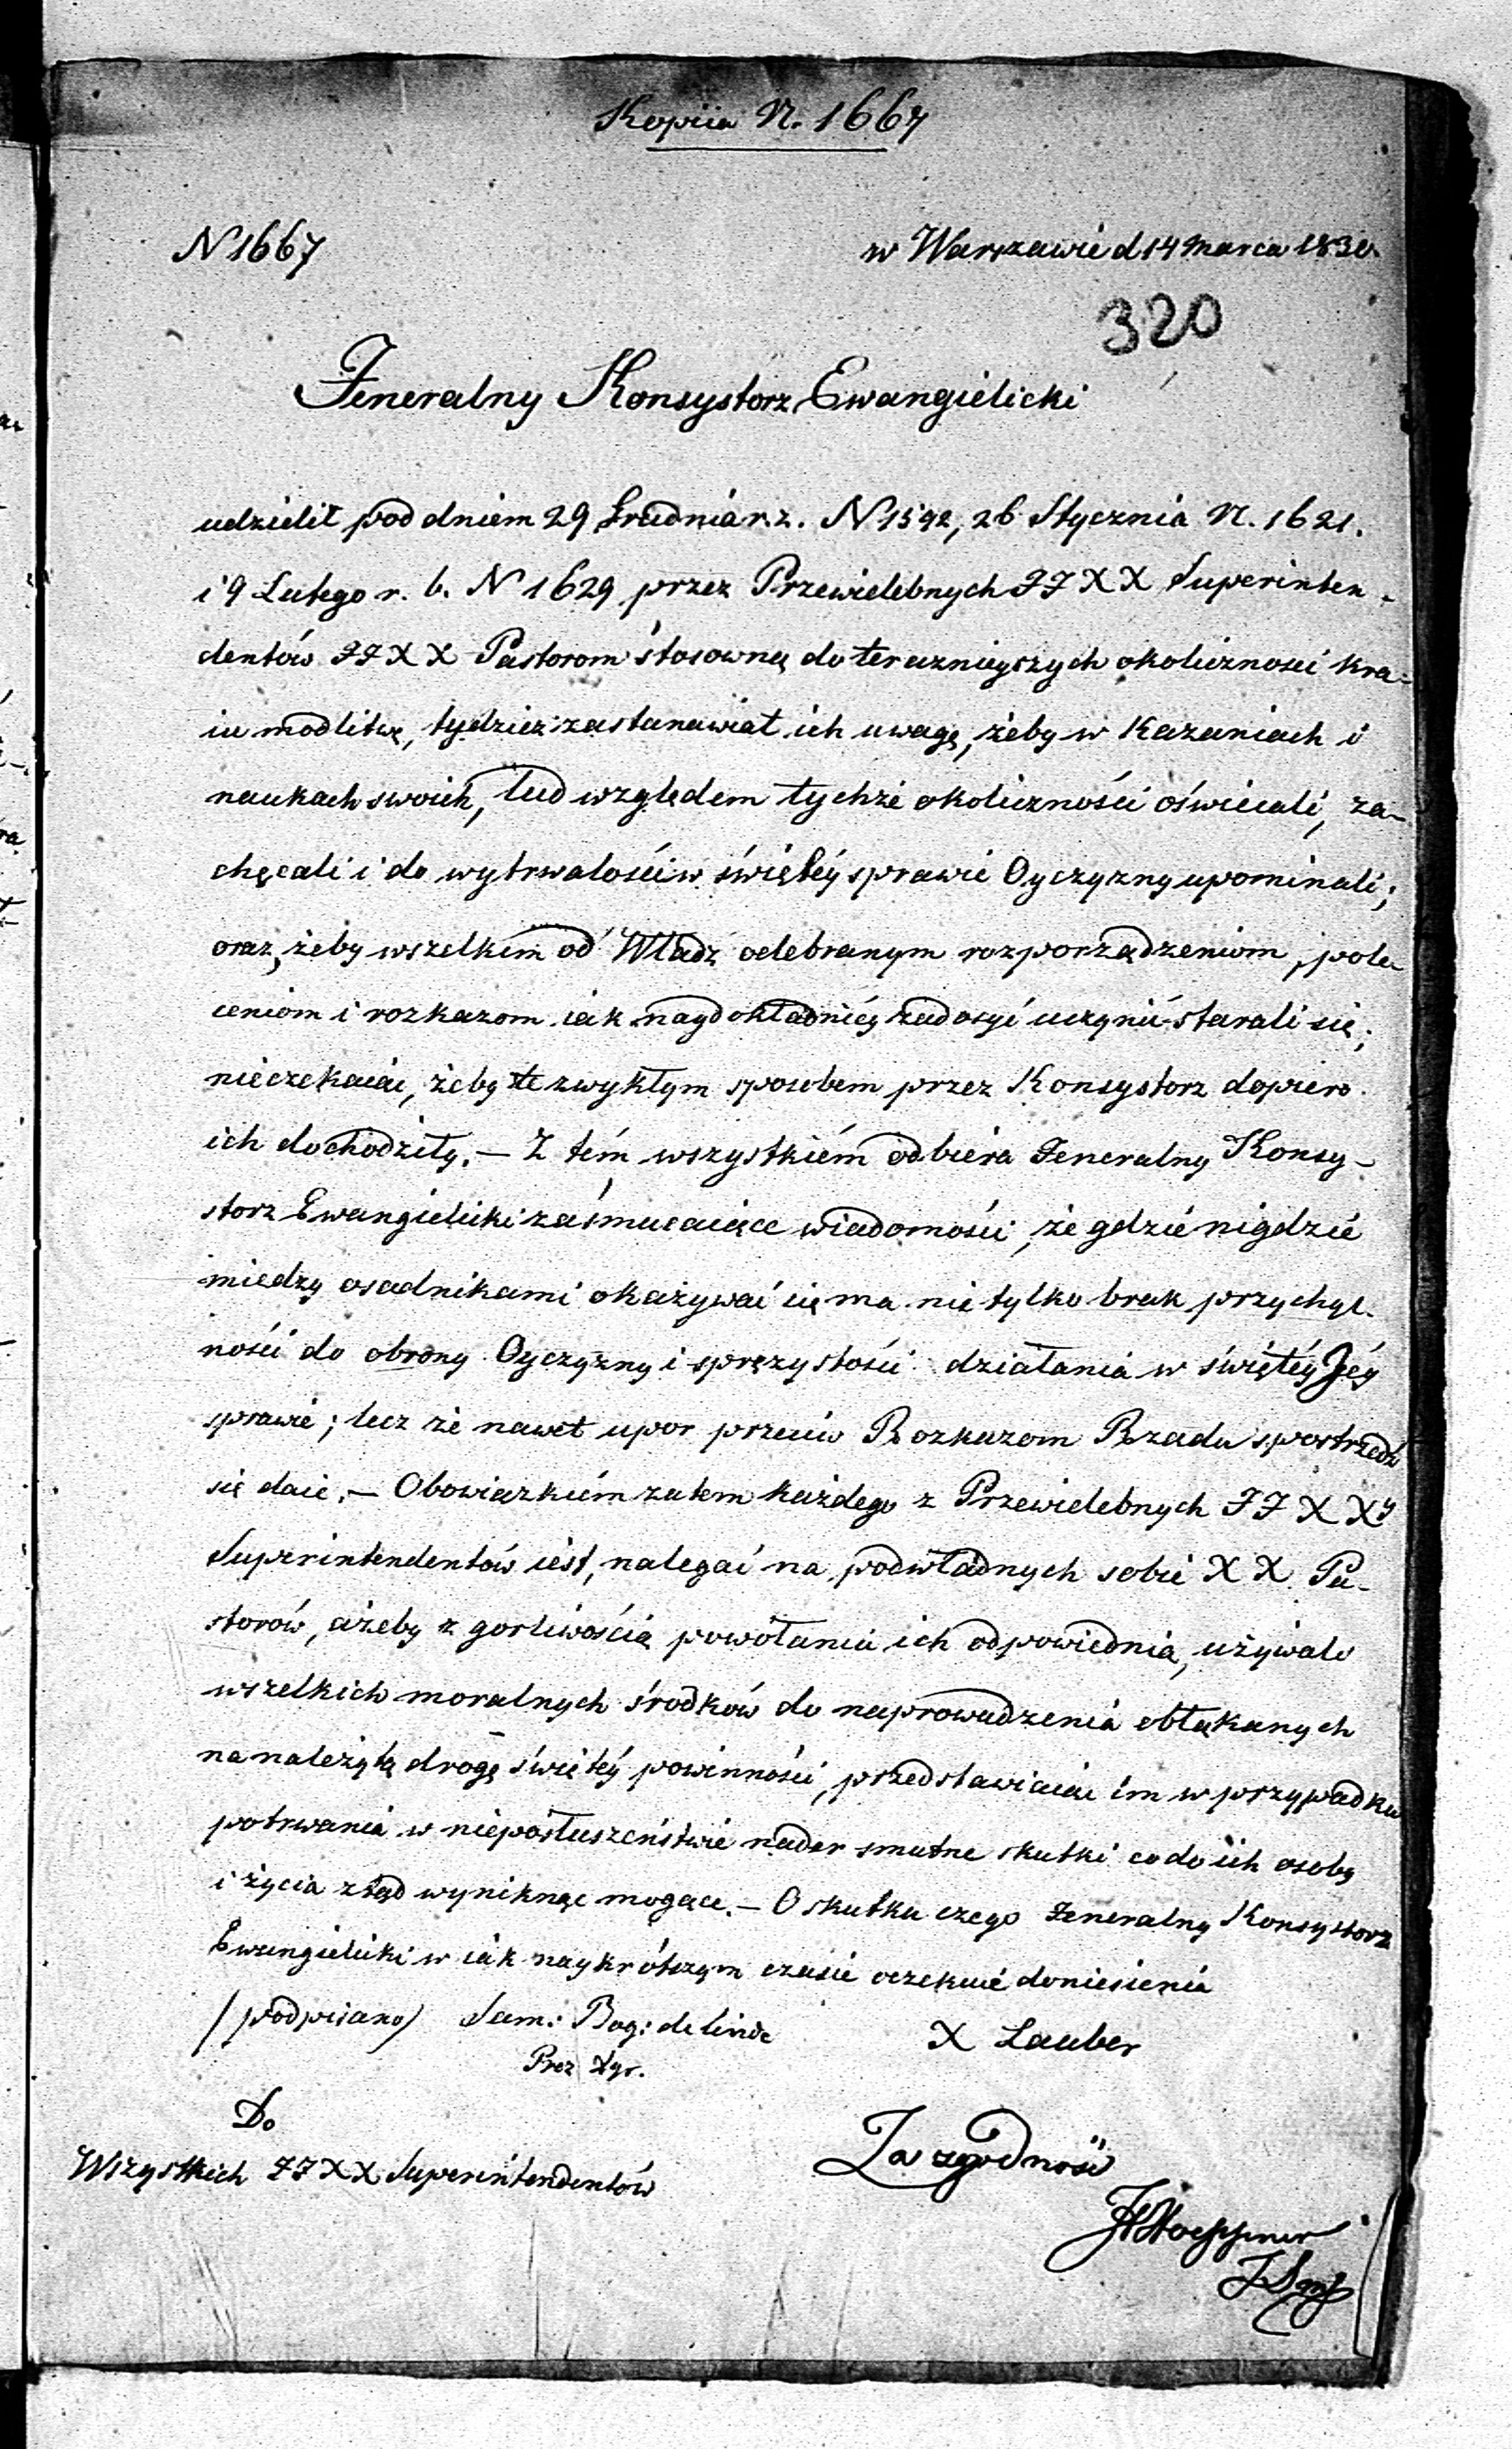 Kopiia N. 1667
N 1667
w Warszawie d 14 Marca 1831.
320
Jeneralny Konsystorz Ewangielicki
udzielił pod dniem 29 Grudnia r.z. N 1592, 26 Stycznia N. 1621.
i 9 Lutego r. b. N 1629 przez Przewielebnych JJXX Superinten-
dentów JJXX Pastorom stosowną do teraznieyszych okoliczności kra-
iu modlitwę, tydzież zastanawiał ich uwagę, żeby w Kazaniach i
naukach swoich, lud względem tychże okoliczności oświecali, za-
chęcali i do wytrwałości w świętéy sprawie Oyczyzny upominali;
oraz, żeby wszelkim od Władz odebranym rozporządzeniom, pole-
ceniom i rozkazom iak naydokładniéy zadosyć uczynić starali się;
nieczekaiąc, żeby te zwykłym sposobem przez Konsystorz dopiero
ich dochodziły. — Z tém wszystkiém odbiera Jeneralny Konsy-
storz Ewangielicki zasmucaiące wiadomości, że gdzie nigdzie
miedzy osadnikami okazywać się ma nie tylko brak przychyl-
ności do obrony Oyczyzny i sprężystości działania w świętéy Jéy
sprawie; lecz że nawet upor przeciw Rozkazom Rządu spostrzedz
się daie. — Obowiązkiém zatem każdego z Przewielebnych JJXXy
Superintendentów iest, nalegać na podwładnych sobie XX Pa-
storów, ażeby z gorliwością powołania ich odpowiednią, używali
wszelkich moralnych środków do naprowadzenia obłąkanych
na należytą drogę świętéy powinności, przedstawiaiąc im w przypadku
potrwania w nieposłuszeństwie nader smutne skutki co do ich osoby
i życia ztąd wyniknąć mogące. — O skutku czego Jeneralny Konsystorz
Ewangielicki w iak naykrótszym czasie oczekuie doniesienia
/podpisano/ Sam: Bog: de Linde
X Lauber
Prez
Do
Wszystkich JJXX Superintendentów
Za zgodność